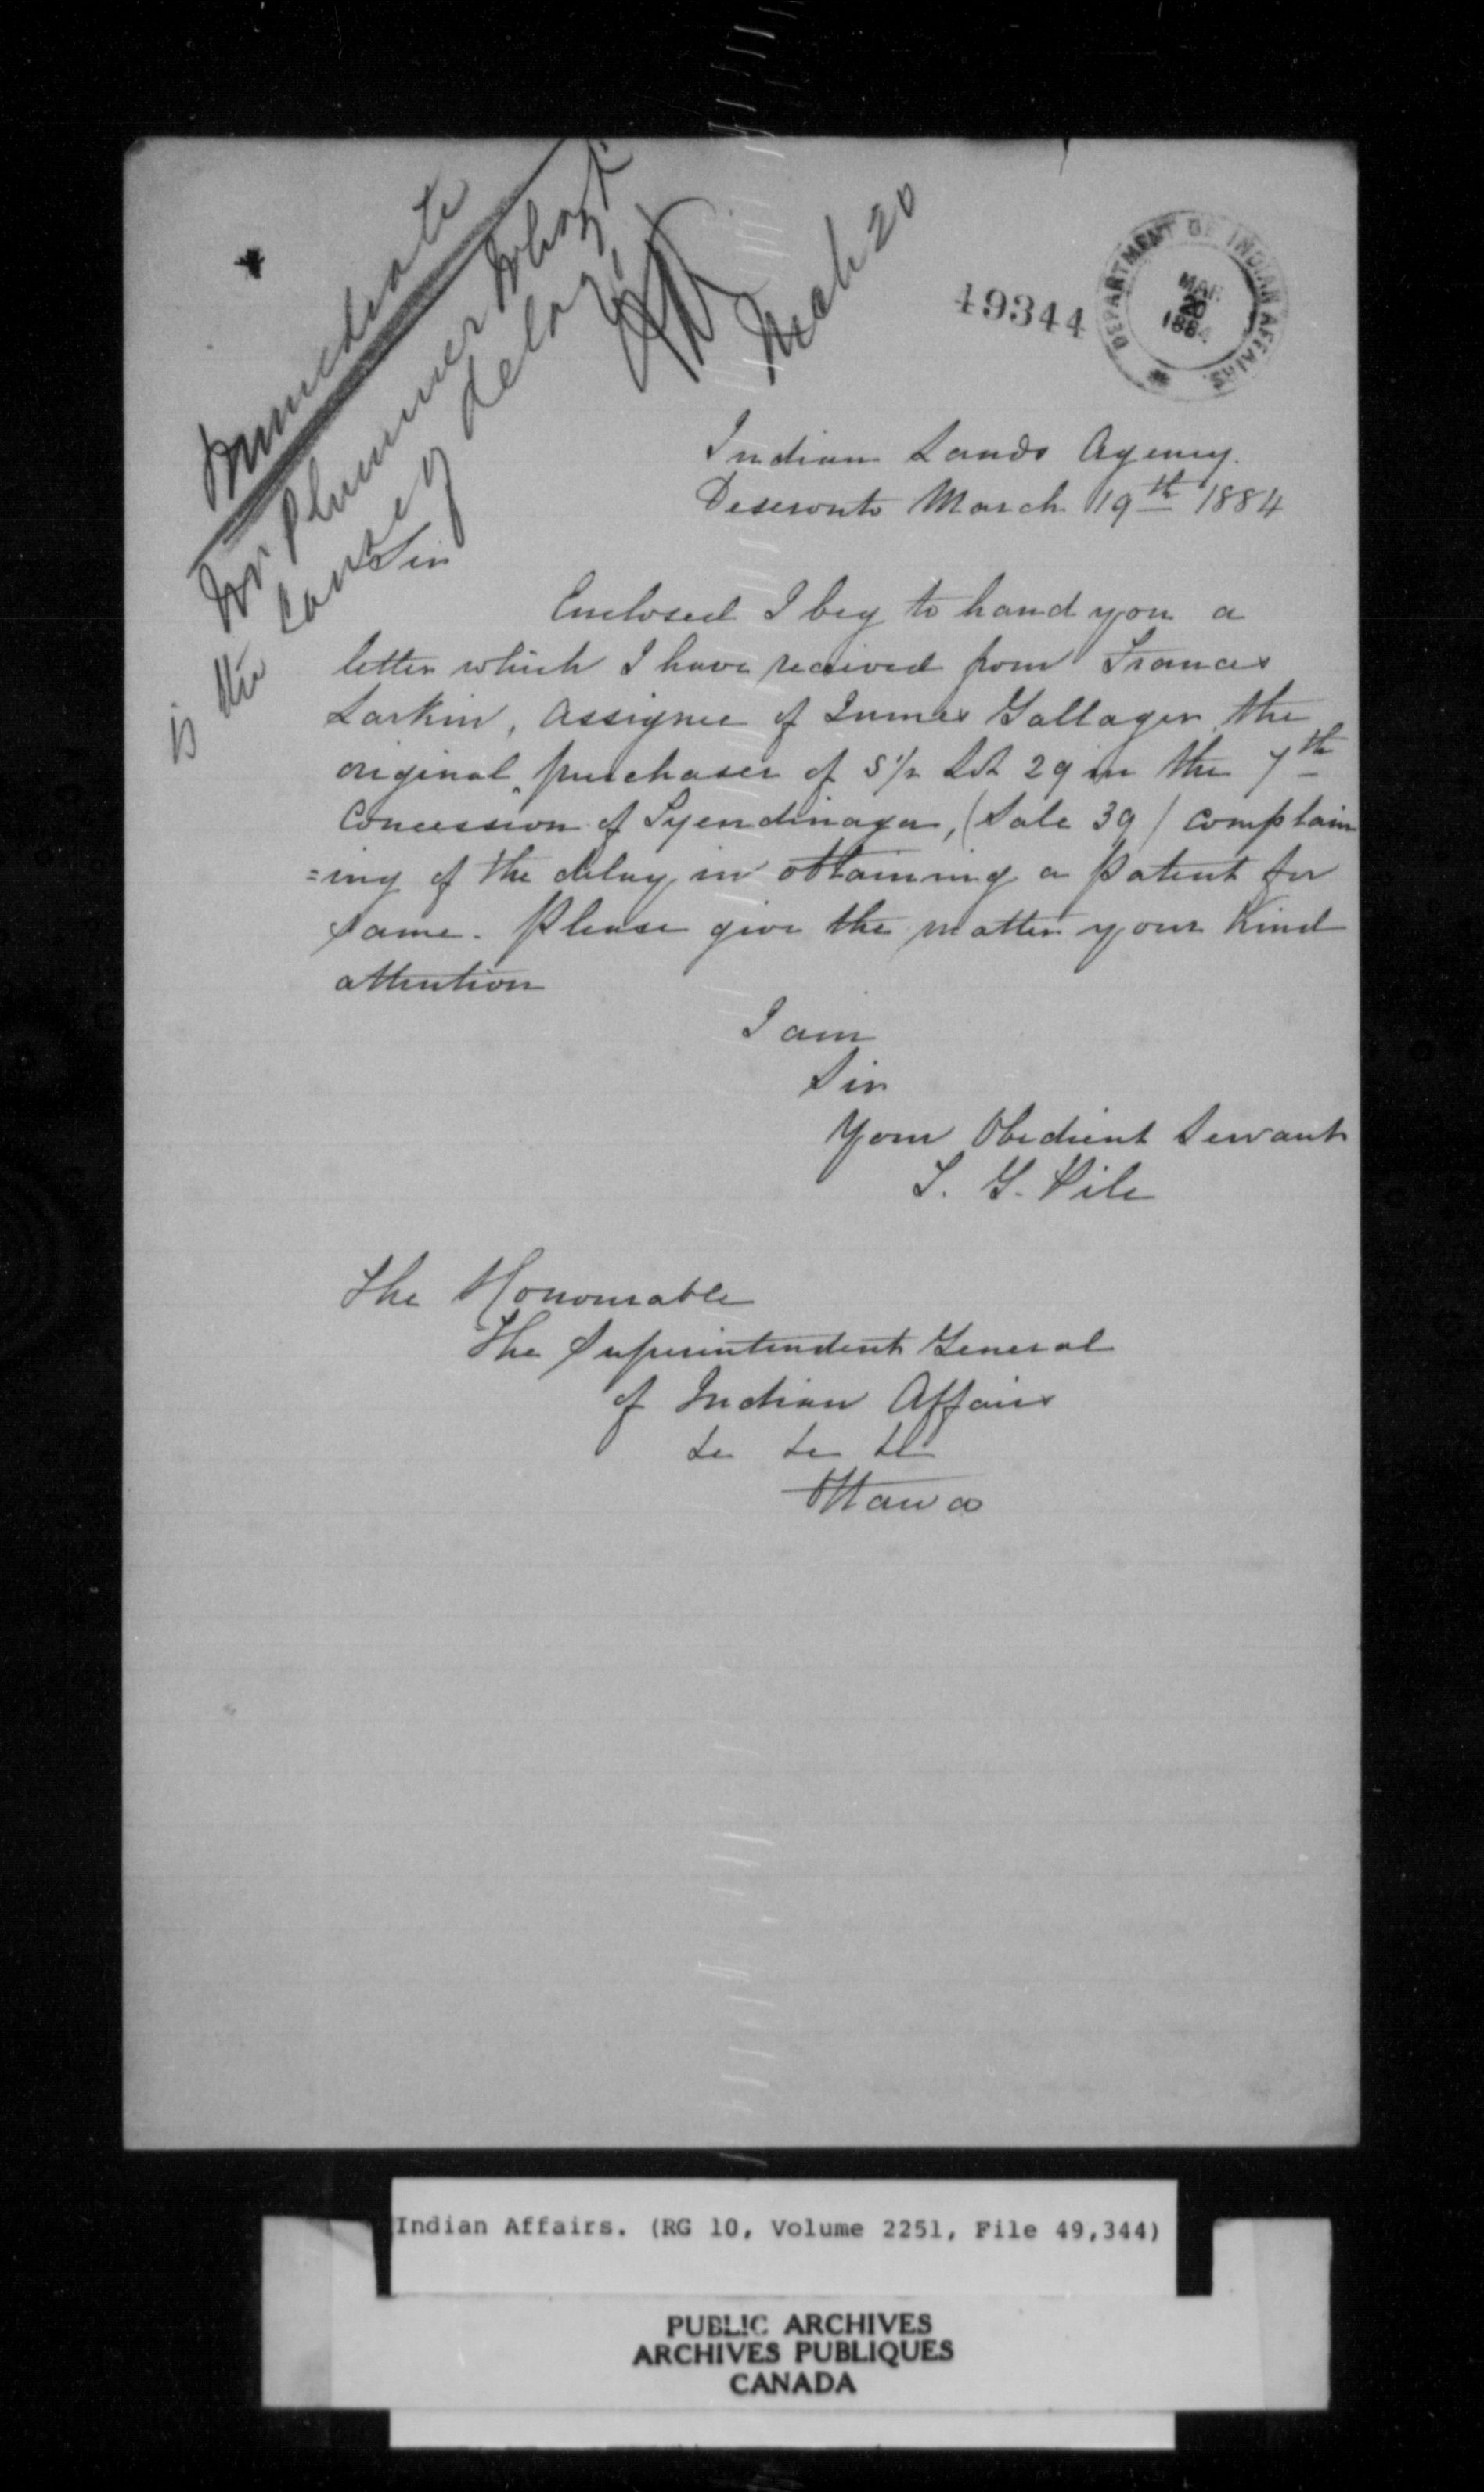 Immediate
Mr Plummer What
is the cause of
delay?
Mch 20
49344
DEPARTMENT OF INDIAN AFFAIRS.
MAR
20
1884
Indian Lands Agency.
Deseronto March 19th 1884
Sir
Enclosed I beg to hand you a
letter which I have received from Frances
Larkin, Assignee of James Gallager, the
original purchaser of S½ Lot 29 in the 7th
Concession of Tyendinaga, (Sale 39) complain
=ing of the delay in obtaining a Patent for
same. Please give the matter your Kind
attention
I am
Sir
Your Obedient Servant
The Honourable
The Superintendent General
of Indian Affairs
Ottawa
Indian Affairs. (RG 10, Volume 2251, File 49,344)
PUBLIC ARCHIVES
ARCHIVES PUBLIQUES
CANADA